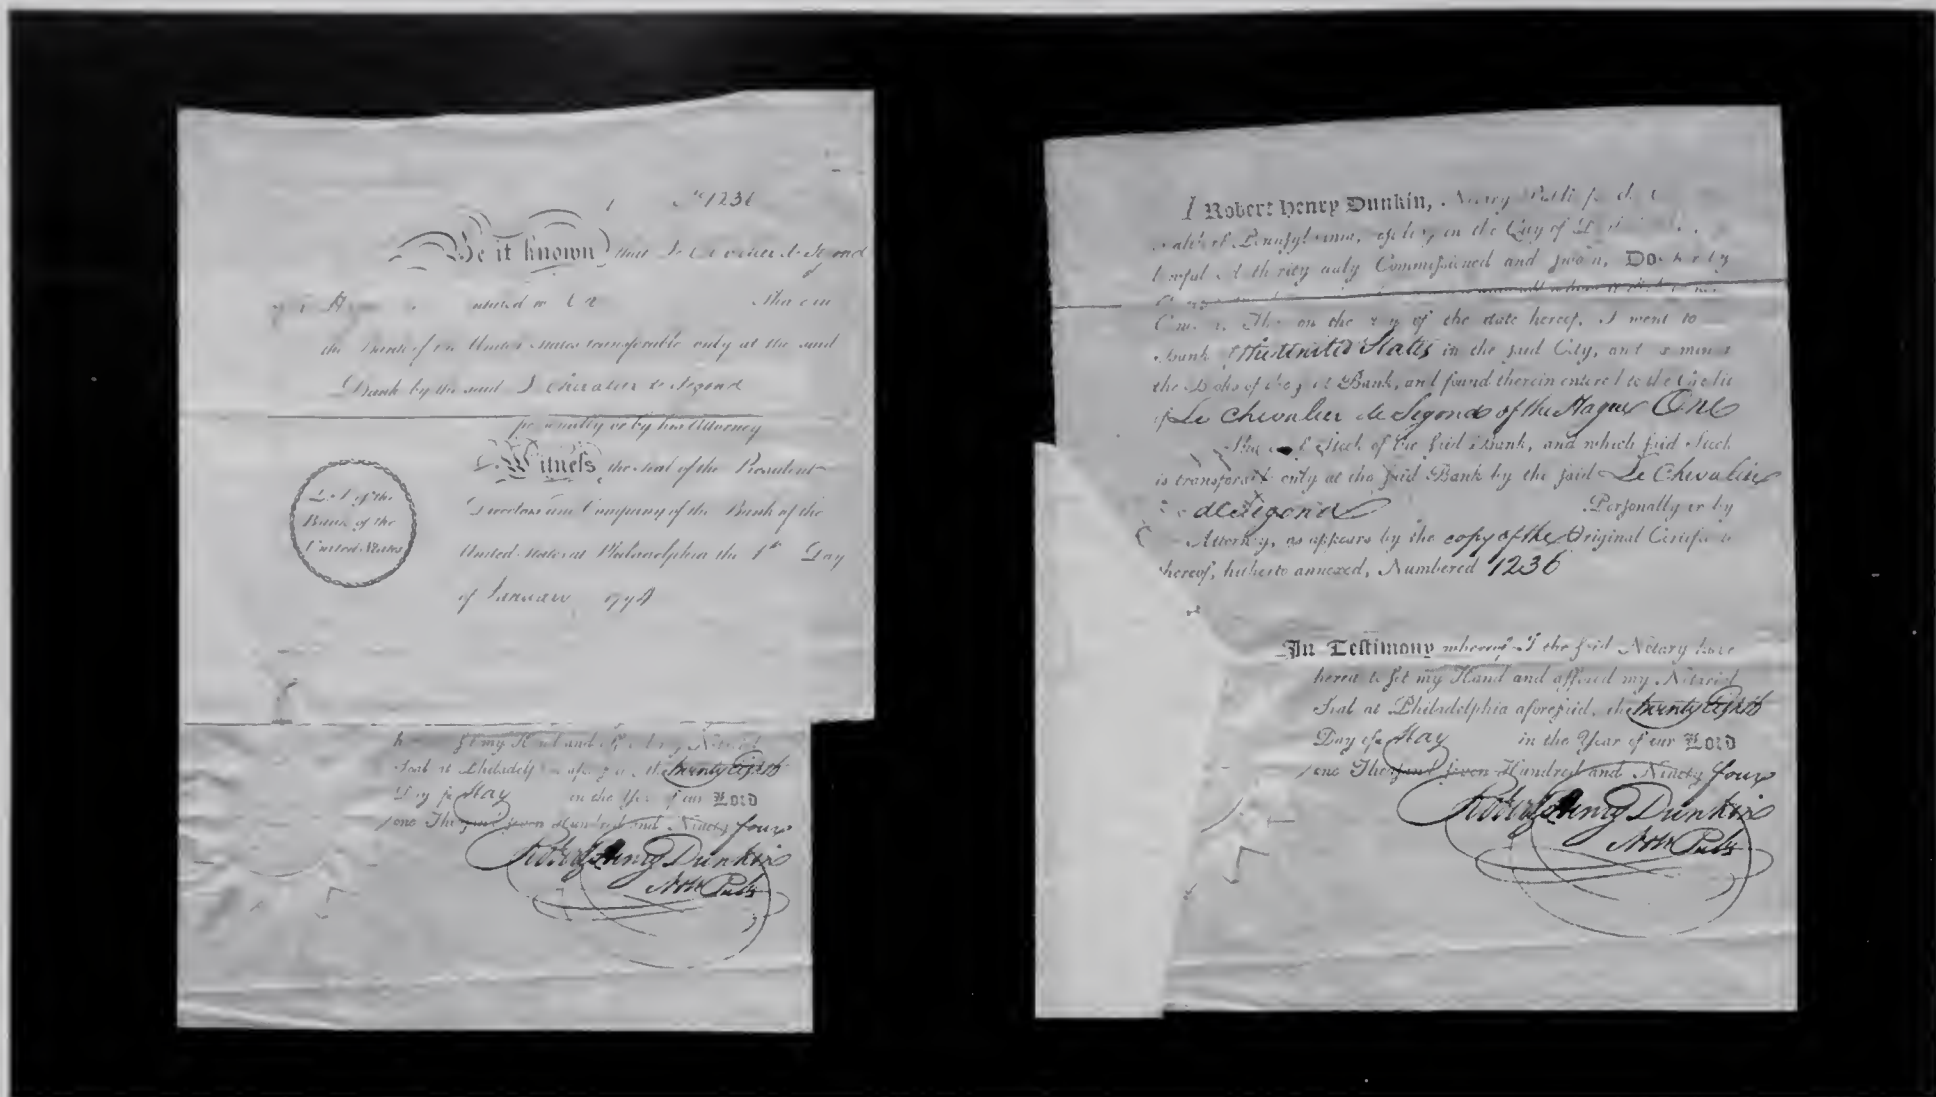 No 1236
Be it known that Le Chevalier de Segond
of
entitled to Share in
the Bank of the United States transferable only at the said
Bank by the said Le Chevalier de Segond
personally or by his Attorney
Witneſs the seal of the President
Directors and Company of the Bank of the
United States at Philadelphia the 1st Day
of January 1794
Seal of the
Bank of the
United States
set my Hand and Notarial
Seal at Philadelphia the twenty Eighth
Day of May in the Year of our Lord
one Thouſand ſeven Hundred and Ninety four
Robert Henry Dunkin
Not. Pub.
I Robert Henry Dunkin, Notary Public for the
of Pennſylvania, in the City of
lawful Authority duly Commiſſioned and ſworn, Do hereby
on the Day of the date hereof, I went to
Bank of the United States in the ſaid City, and examined
the Books of the ſaid Bank, and found therein entered to the Credit
of Le Chevalier de Segond of the Hague One
Stock of the ſaid Bank, and which ſaid Stock
is transferable only at the ſaid Bank by the ſaid Le Chevalier
de Segond Perſonally or by
Attorney, as appears by the copy of the Original Certificate
thereof, hereto annexed, Numbered 1236
In Teſtimony whereof I the ſaid Notary have
hereunto ſet my Hand and affixed my Notarial
Seal at Philadelphia aforeſaid, the twenty Eighth
Day of May in the Year of our Lord
one Thouſand ſeven Hundred and Ninety four
Robert Henry Dunkin
Not. Pub.